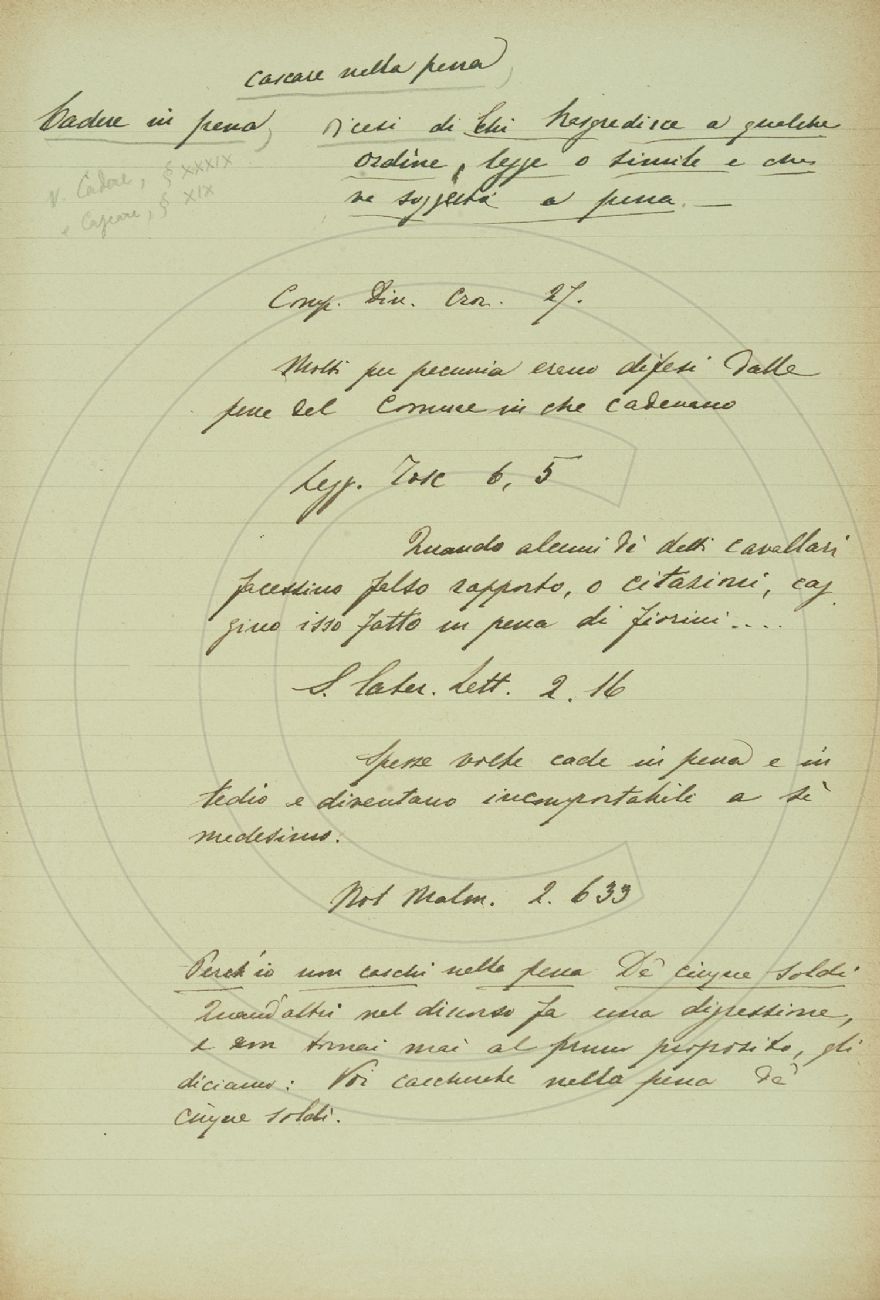 cascare nella pena,
Cadere in pena, dicesi di Chi trasgredisce a qualche
ordine, legge o simile e che
ne soggetta a pena. —
V. Cadere, § XXXIX
e Cascare, § XIX
Comp. Din. Cron. 27.
Molti per pecunia erano difesi dalle
pene del Comune in che cadevano
Legg. Tosc 6, 5
Quando alcuni de detti cavallari
facessino falso rapporto, o citazioni, cag
gino isso fatto in pena di fiorini....
S. Cater. Lett. 2. 16
Spesse volte cade in pena e in
tedio e diventano incomportabile a sè
medesimo.
Not Malm. 2. 633
Perch'io non caschi nella pena De' cinque soldi
Quand'altri nel discorso fa una digressione,
e non torna mai al primo proposito, gli
diciamo: Voi cascherete nella pena de'
cinque soldi.